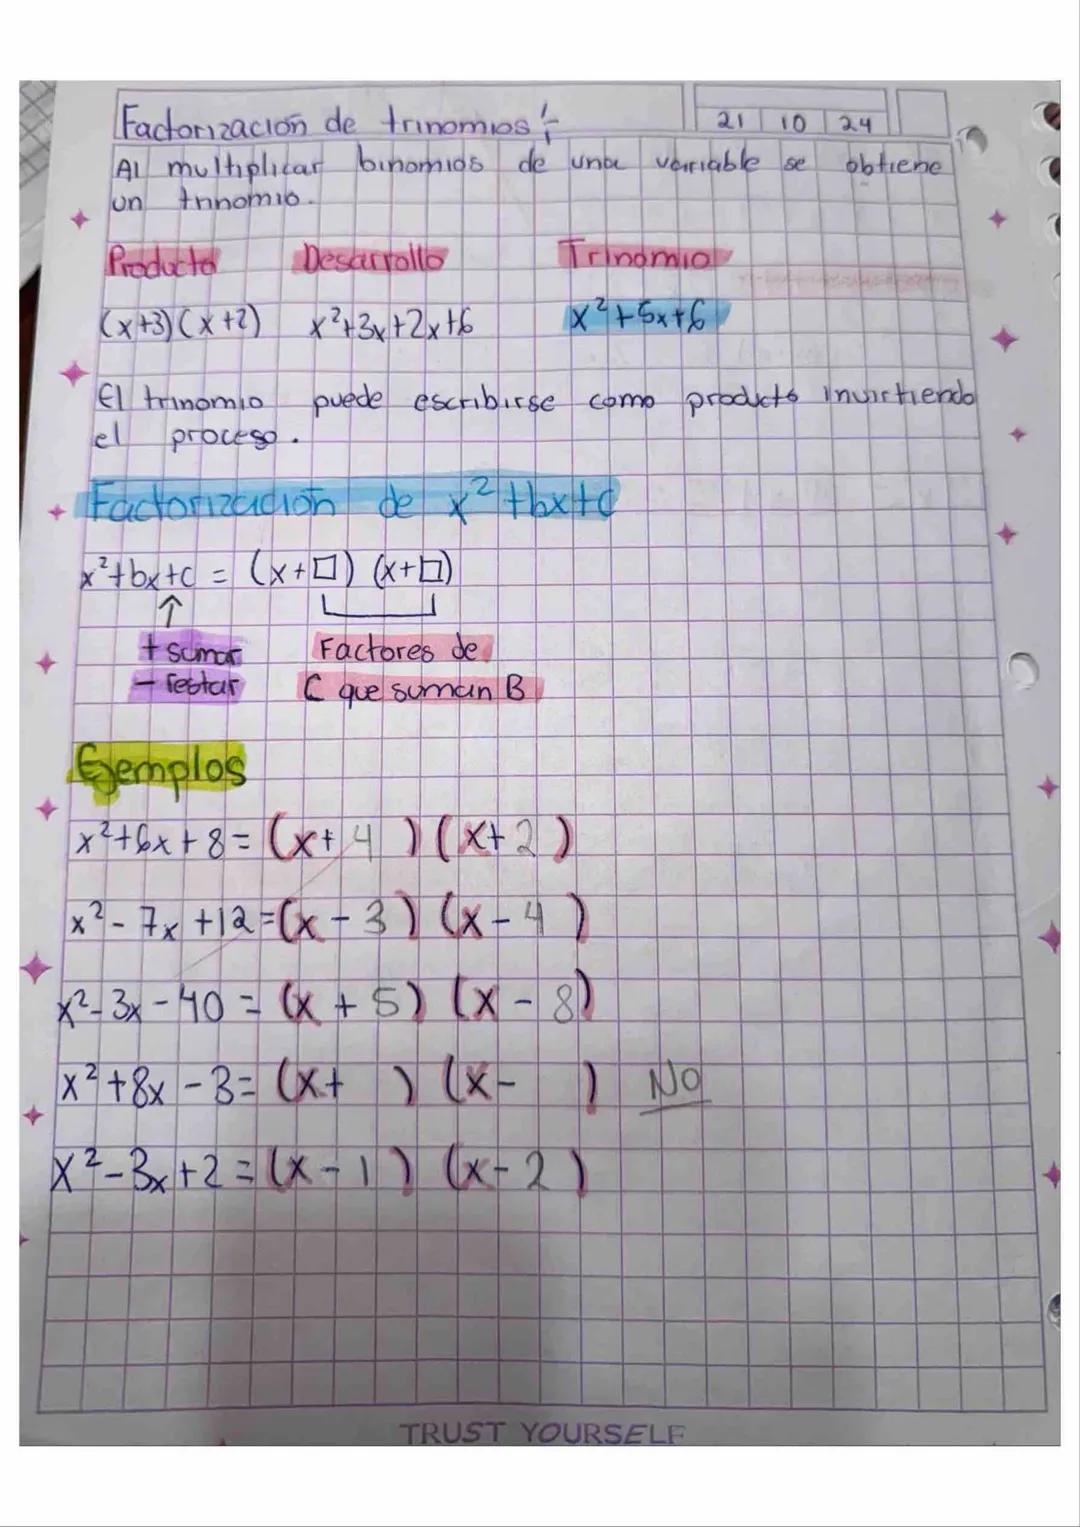 Factorización de trinomios
21 10 24
Al multiplicar binomios de una variable se obtiene
un trinomio.
Producto Desarrollo Trinomio
(x+3)(x+2) x²+3x+2x+6 x²+5x+6
El trinomio puede escribirse como producto invirtiendo
el proceso.
Factorización de x²+bx+c
x²+bx+c = (x+□) (x+□)
↑
+ sumar Factores de
- restar C que suman B
Ejemplos
x²+6x+8=(x+4)(x+2)
x²-7x+12=(x-3)(x-4)
x²-3x-40=(x+5)(x-8)
x²+8x-3=(x+ )(x- ) NO
x²-3x+2=(x-1)(x-2)
TRUST YOURSELF